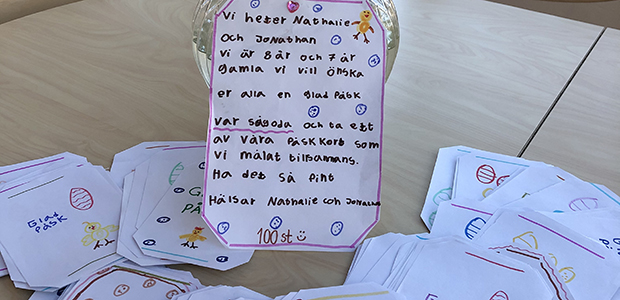 Vi heter Nathalie
och Jonathan
vi är 8 år och 7 år
gamla vi vill önska
er alla en glad Påsk
var sågoda och ta ett
av våra Påskkort som
vi målat tillsamans.
Ha det så fint
Hälsar Nathalie och Jonathan
100 st
Glad
Påsk
GL
PÅSK
Glad